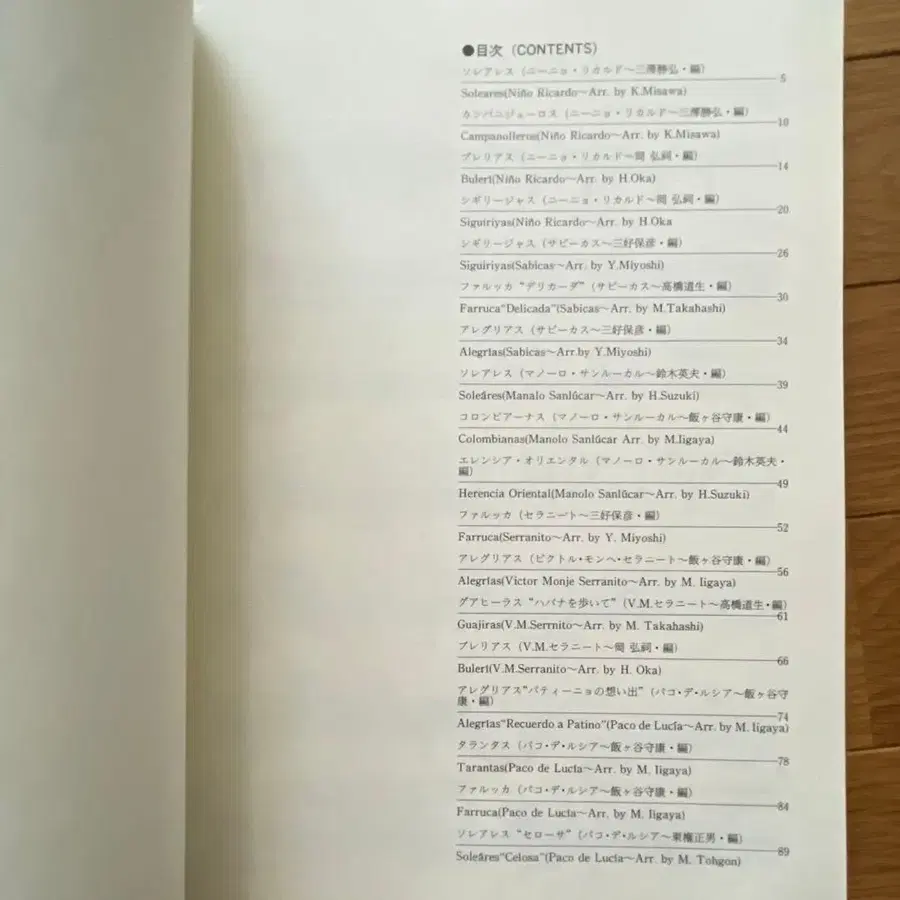 ●目次 (CONTENTS)
ソレアレス (ニーニョ・リカルド～三澤勝弘・編)
5
Soleares(Niño Ricardo～Arr. by K.Misawa)
カンパニジェーロス (ニーニョ・リカルド～三澤勝弘・編)
10
Campanolleros(Niño Ricardo～Arr. by K.Misawa)
ブレリアス (ニーニョ・リカルド～岡 弘祠・編)
14
Bulerī(Niño Ricardo～Arr. by H.Oka)
シギリージャス (ニーニョ・リカルド～岡 弘祠・編)
20
Siguiriyas(Niño Ricardo～Arr. by H.Oka
シギリージャス (サビーカス～三好保彦・編)
26
Siguiriyas(Sabicas～Arr. by Y.Miyoshi)
ファルッカ “デリカーダ” (サビーカス～高橋道生・編)
30
Farruca“Delicada”(Sabicas～Arr. by M.Takahashi)
アレグリアス (サビーカス～三好保彦・編)
34
Alegrīas(Sabicas～Arr.by Y.Miyoshi)
ソレアレス (マノーロ・サンルーカル～鈴木英夫・編)
39
Soleáres(Manalo Sanlúcar～Arr. by H.Suzuki)
コロンビアーナス (マノーロ・サンルーカル～飯ヶ谷守康・編)
44
Colombianas(Manolo Sanlúcar Arr. by M.Iigaya)
エレンシア・オリエンタル (マノーロ・サンルーカル～鈴木英夫・
編)
49
Herencia Oriental(Manolo Sanlúcar～Arr. by H.Suzuki)
ファルッカ (セラニート～三好保彦・編)
52
Farruca(Serranito～Arr. by Y. Miyoshi)
アレグリアス (ビクトル・モンヘ・セラニート～飯ヶ谷守康・編)
56
Alegrías(Victor Monje Serranito～Arr. by M. Iigaya)
グアヒーラス “ハバナを歩いて” (V.M.セラニート～高橋道生・編)
61
Guajiras(V.M.Serrnito～Arr. by M. Takahashi)
ブレリアス (V.M.セラニート～岡 弘祠・編)
66
Bulerī(V.M.Serranito～Arr. by H. Oka)
アレグリアス“パティーニョの想い出” (パコ・デ・ルシア～飯ヶ谷守
康・編)
74
Alegrías“Recuerdo a Patino”(Paco de Lucía～Arr. by M. Iigaya)
タランタス (パコ・デ・ルシア～飯ヶ谷守康・編)
78
Tarantas(Paco de Lucía～Arr. by M. Iigaya)
ファルッカ (パコ・デ・ルシア～飯ヶ谷守康・編)
84
Farruca(Paco de Lucía～Arr. by M. Iigaya)
ソレアレス “セローサ” (パコ・デ・ルシア～東権正男・編)
89
Soleáres“Celosa”(Paco de Lucía～Arr. by M. Tohgon)